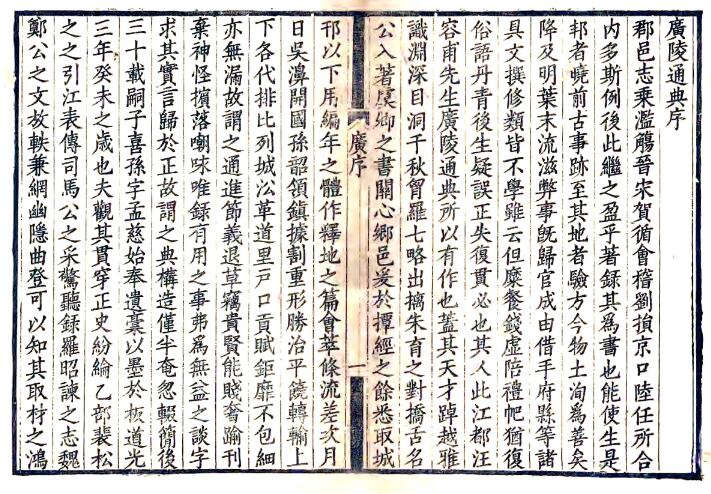 廣陵通典序
郡邑志乘濫觴晉宋賀循會稽劉損京口陸任所合
内多斯例後此繼之盈乎著録其爲書也能使生是
邦者曉前古事跡至其地者驗方今物土洵爲善矣
降及明葉末流滋弊事旣歸官成由借手府縣等諸
具文撰修類皆不學雖云但糜餐錢虛陪禮帊猶復
俗語丹青後生疑誤正失復貫必也其人此江都汪
容甫先生廣陵通典所以有作也蓋其天才踔越雅
識淵深目洞千秋胷羅七略出摛朱育之對撟舌名
公入著虞卿之書關心鄉邑爰於撢經之餘悉取城
廣序
一
邗以下用編年之體作釋地之篇會萃條流差次月
日吳濞開國孫韶領鎮據割重形勝治平饒轉輸上
下各代排比列城㳂革道里戸口貢賦鉅靡不包細
亦無漏故謂之通進節義退草竊貴賢能賤奢踰刊
棄神怪擯落嘲咏唯録有用之事弗爲無益之談字
求其實言歸於正故謂之典構造僅半奄忽輟簡後
三十載嗣子喜孫字孟慈始奉遺稾以墨於板道光
三年癸未之歲也夫觀其貫穿正史紛綸乙部裴松
之之引江表傳司馬公之采驚聽録羅昭諫之志魏
鄭公之文故軼兼網幽隱曲登可以知其取材之鴻